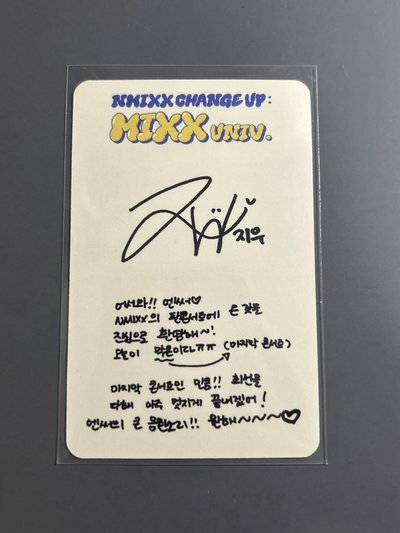 NMIXX CHANGE UP:
MIXX UNIV.
지우
어서와!! 엔써♡
NMIXX의 팬콘서트에 온 것을
진심으로 환영해~!
오늘이 막콘이다ㅠㅠ (마지막 콘서트)
마지막 콘서트인 만큼!! 최선을
다해 아주 멋지게 끝내겠어!
엔써의 큰 응원소리!! 원해~~~♡